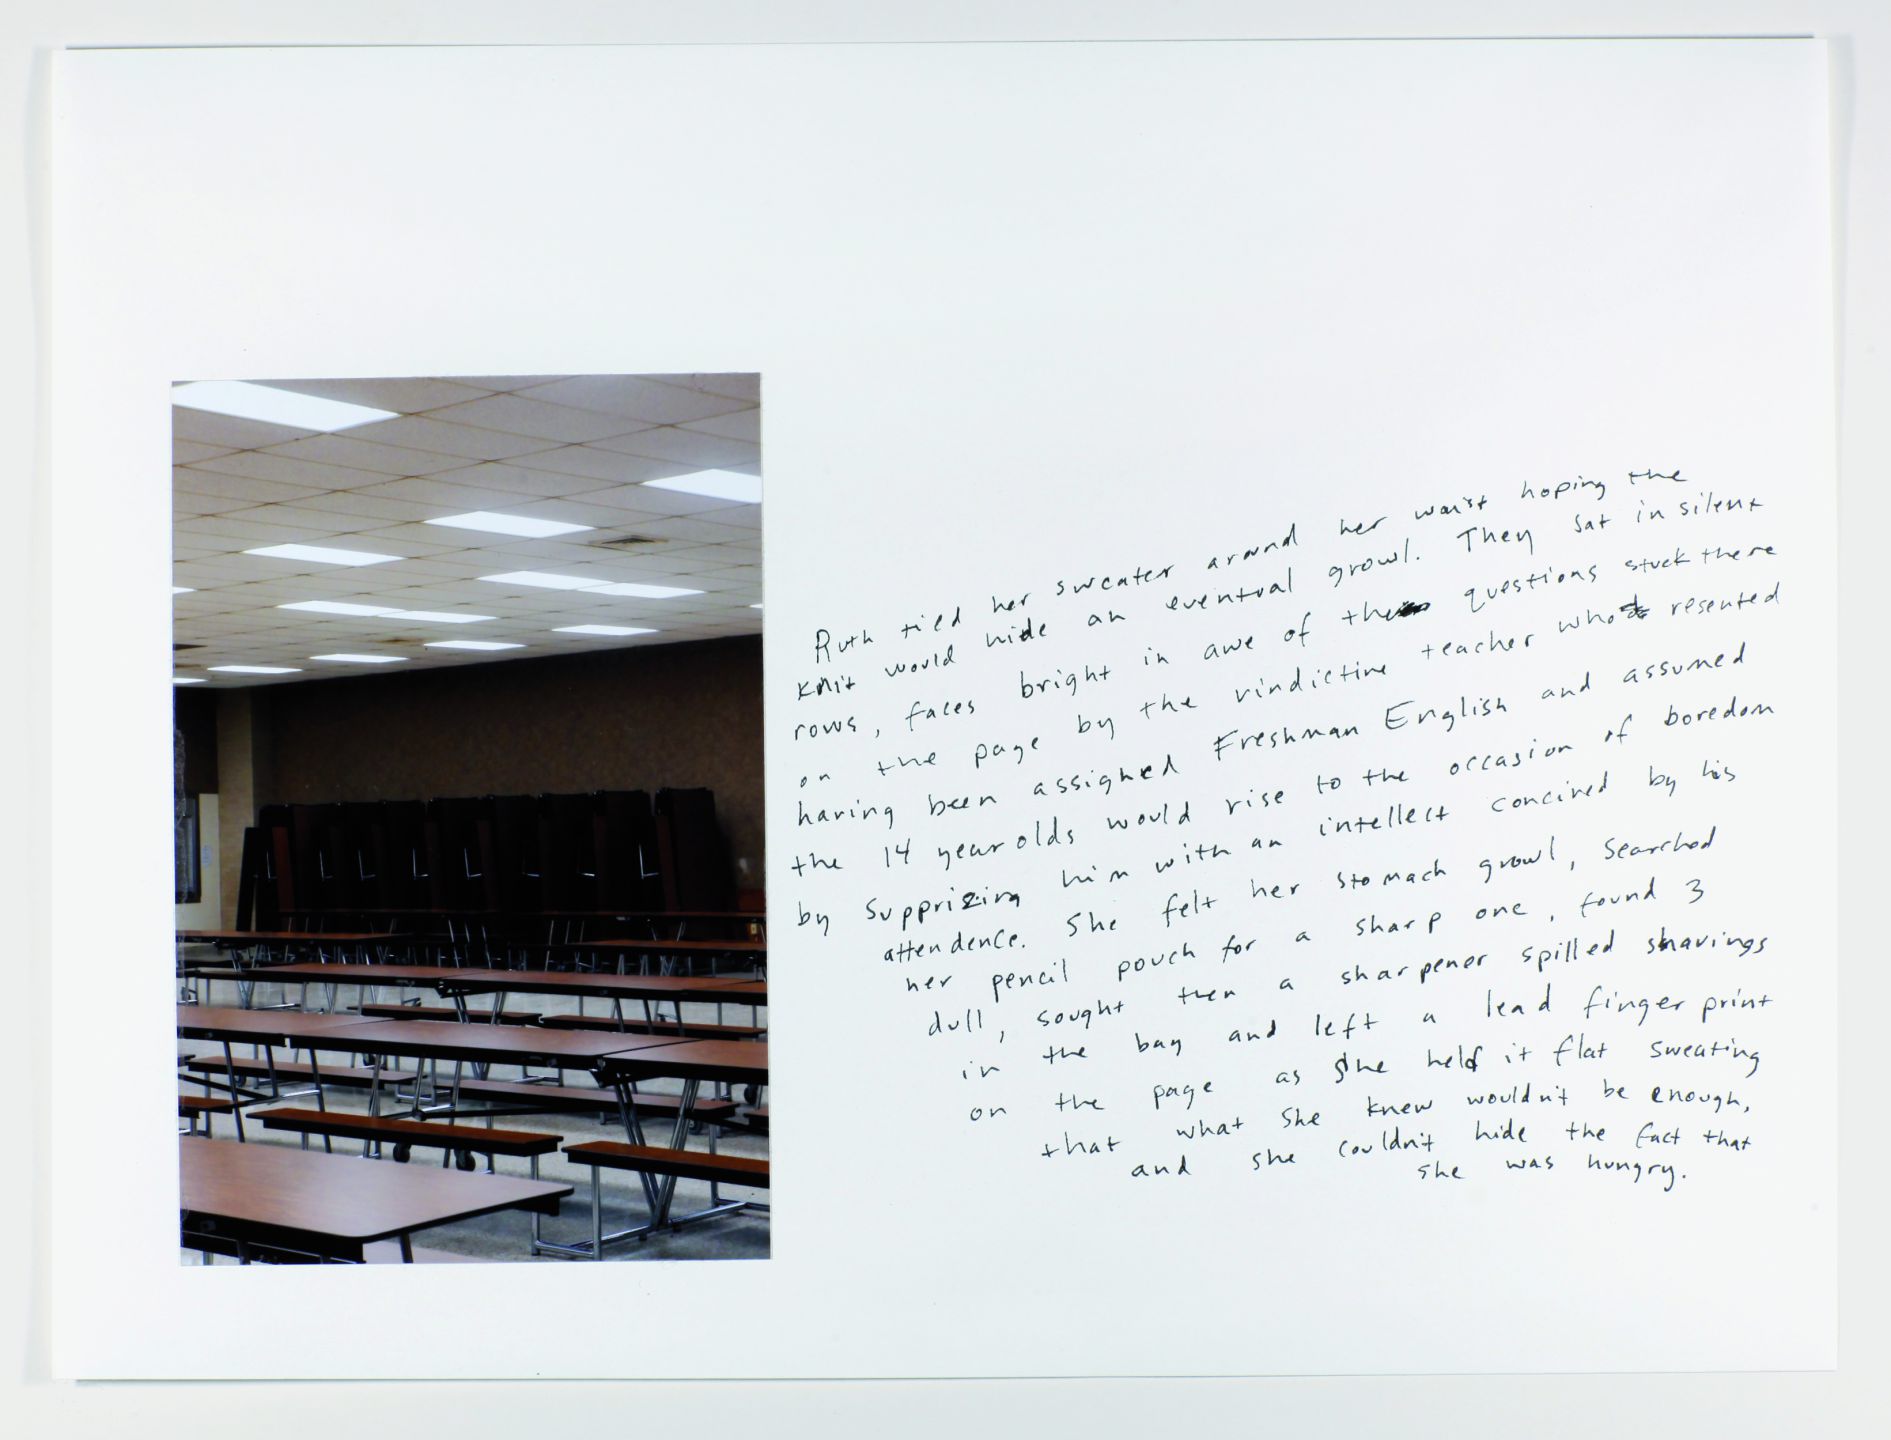 Ruth tied her sweater around her waist hoping the
knit would hide an eventual growl. They sat in silent
rows, faces bright in awe of the questions stuck there
on the page by the vindictive teacher who resented
having been assigned Freshman English and assumed
the 14 year olds would rise to the occasion of boredom
by supprizing him with an intellect concined by his
attendence. She felt her stomach growl, searched
her pencil pouch for a sharp one, found 3
dull, sought then a sharpener spilled shavings
in the bag and left a lead finger print
on the page as she held it flat sweating
that what she knew wouldn't be enough,
and she couldn't hide the fact that
she was hungry.